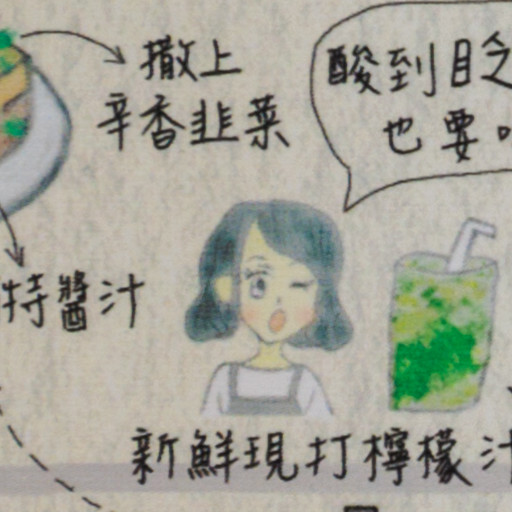 撒上
辛香韭菜
酸到
也要
特醬汁
新鮮現打檸檬汁